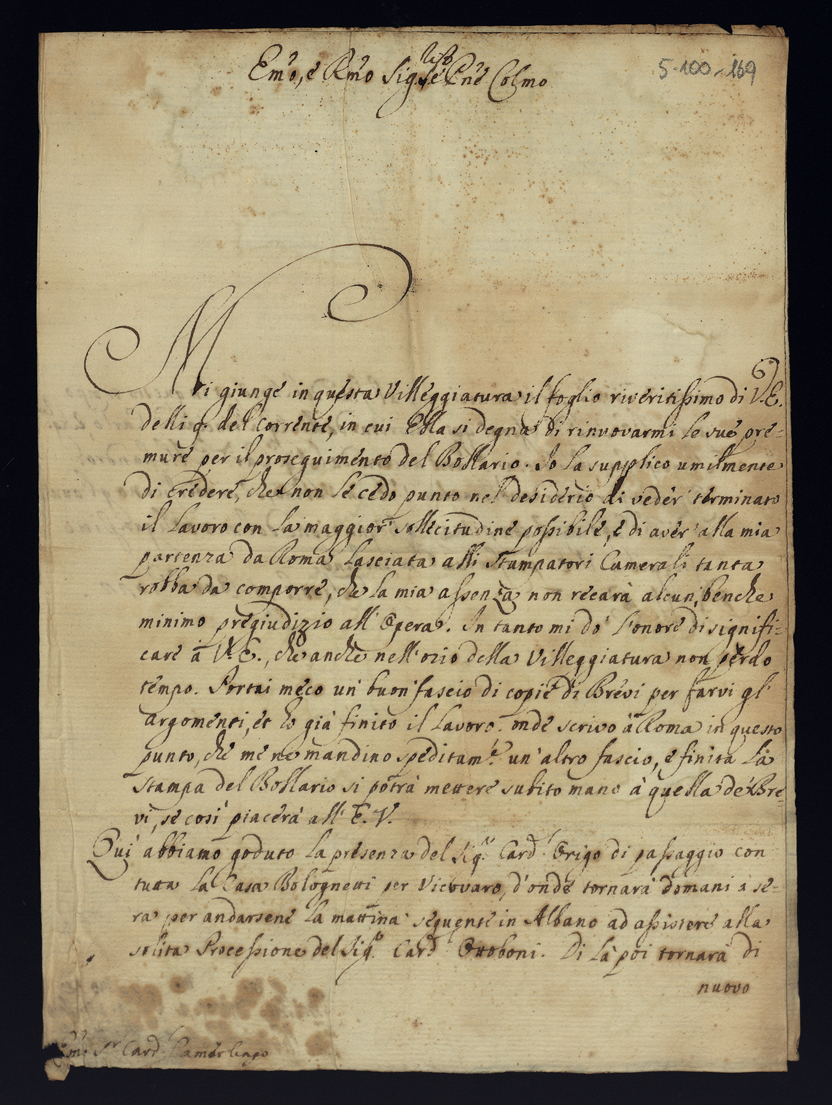 Emo, e Rmo Sig.re Pne Colmo
5-100-169
Mi giunge in questa Villeggiatura il foglio riveritissimo di V.E.
delli 9. del Corrente, in cui Ella si degna di rinuovarmi le sue pre-
mure per il proseguimento del Bollario. Io la supplico umilmente
di credere, che non Le cedo punto nel desiderio di veder terminato
il Lavoro con la maggior sollecitudine possibile, e di aver alla mia
partenza da Roma lasciata alli Stampatori Camerali tanta
robba da comporre, che la mia assenza non recarà alcun, benche
minimo pregiudizio all'Opera. In tanto mi dò l'onore di signifi-
care à V.E., che anche nell'ozio della Villeggiatura non perdo
tempo. Portai meco un buon fascio di copie di Brevi per farvi gl'
argomenti, et hò già finito il lavoro. onde scrivo à Roma in questo
punto, che me ne mandino speditam.te un'altro fascio, e finita la
stampa del Bollario si potrà mettere subito mano à quella de' Bre-
vi, se così piacerà all'E.V.
Qui abbiamo goduto la presenza del Sig.r Card.l Origo di passaggio con
tutta la Casa Bolognetti per Vicovaro, d'onde tornarà domani à se-
ra per andarsene la mattina seguente in Albano ad assistere alla
solita Processione del Sig.r Card.l Ottoboni. Di là poi tornarà di
nuovo
Sr Card.l Camerlengo